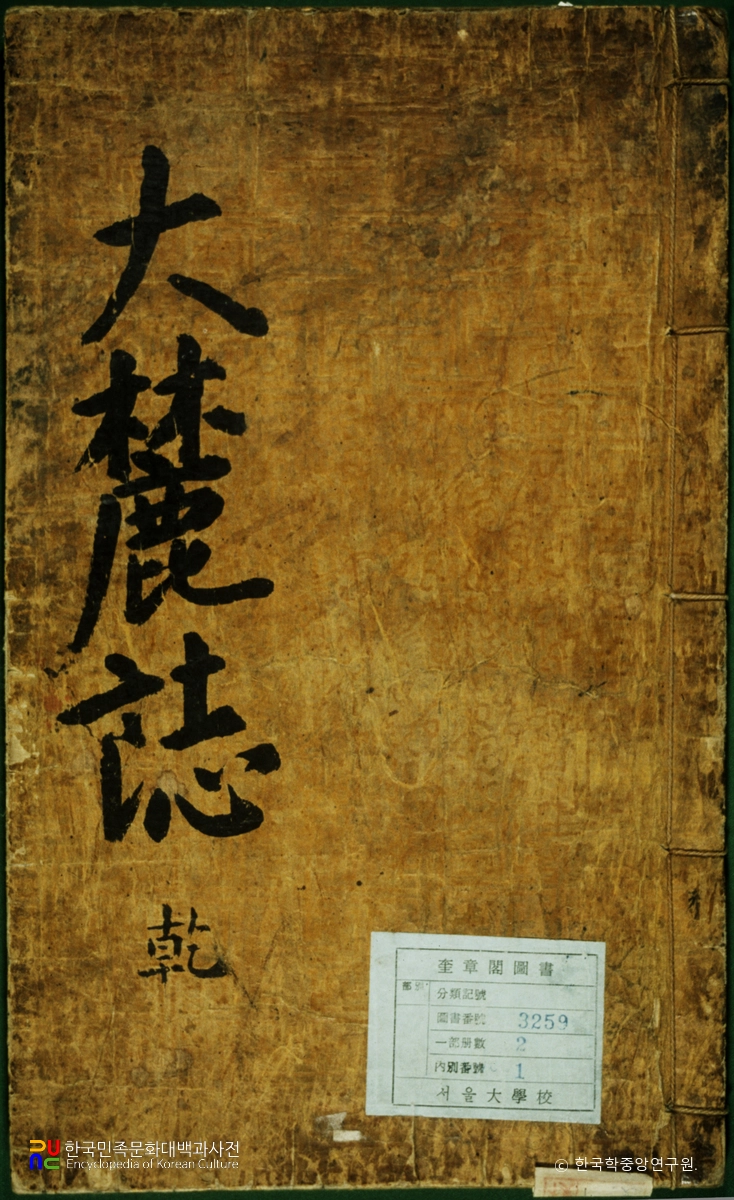 大麓誌
乾
奎章閣圖書
部別
分類記號
圖書番號 3259
一部册數 2
內別番號 1
서울大學校
한국민족문화대백과사전
Encyclopedia of Korean Culture
© 한국학중앙연구원.